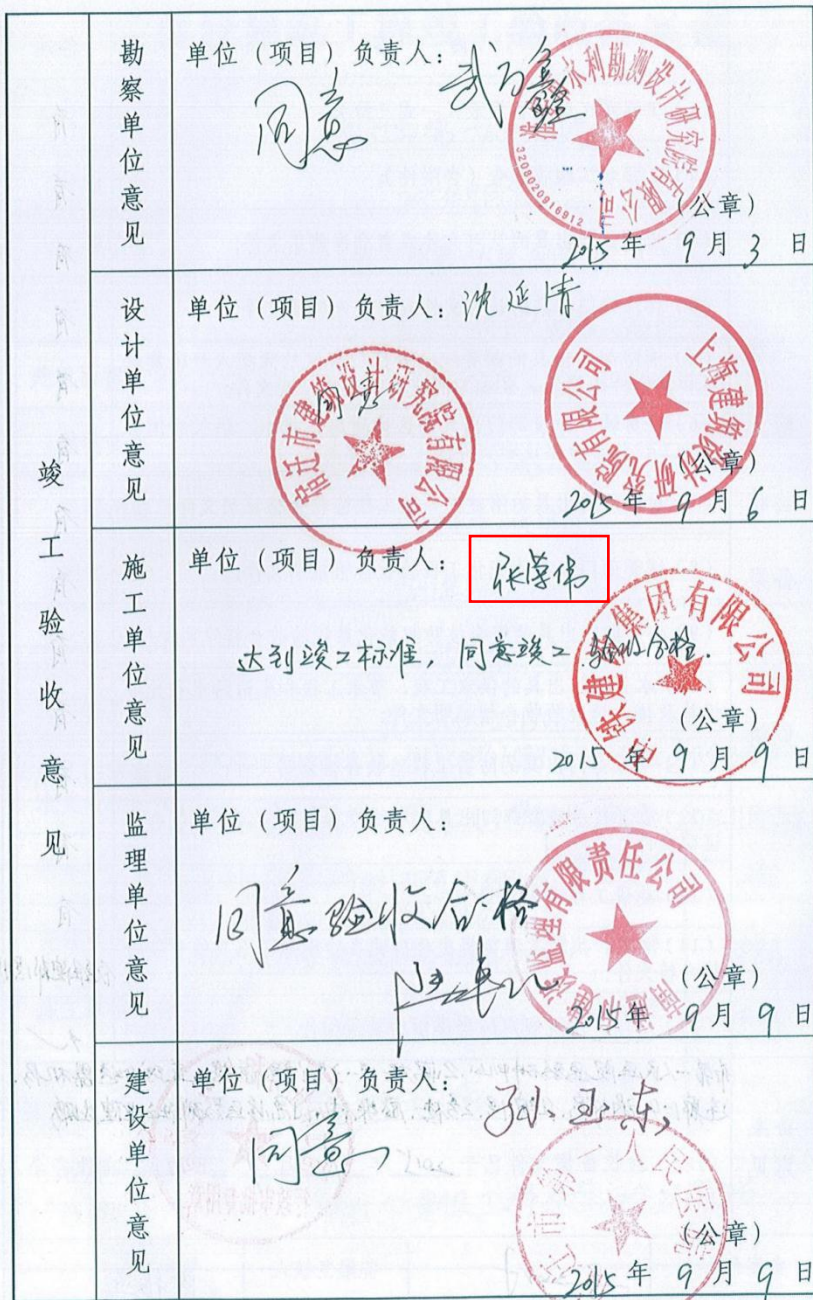 竣工验收意见
勘察单位意见
单位（项目）负责人：
同意
水利勘测设计研究院有限公司
3208020916912
（公章）
2015年 9月 3 日
设计单位意见
单位（项目）负责人：沈延清
同意
宿迁市建筑设计研究院有限公司
上海建筑设计研究院有限公司
（公章）
2015年 9月 6 日
施工单位意见
单位（项目）负责人：
达到竣工标准，同意竣工验收合格.
铁建 集团有限公司
（公章）
2015年 9月 9 日
监理单位意见
单位（项目）负责人：
同意验收合格
建设监理有限责任公司
（公章）
2015年 9月 9 日
建设单位意见
单位（项目）负责人：
同意
市第 人民医院
（公章）
2015年 9月 9 日